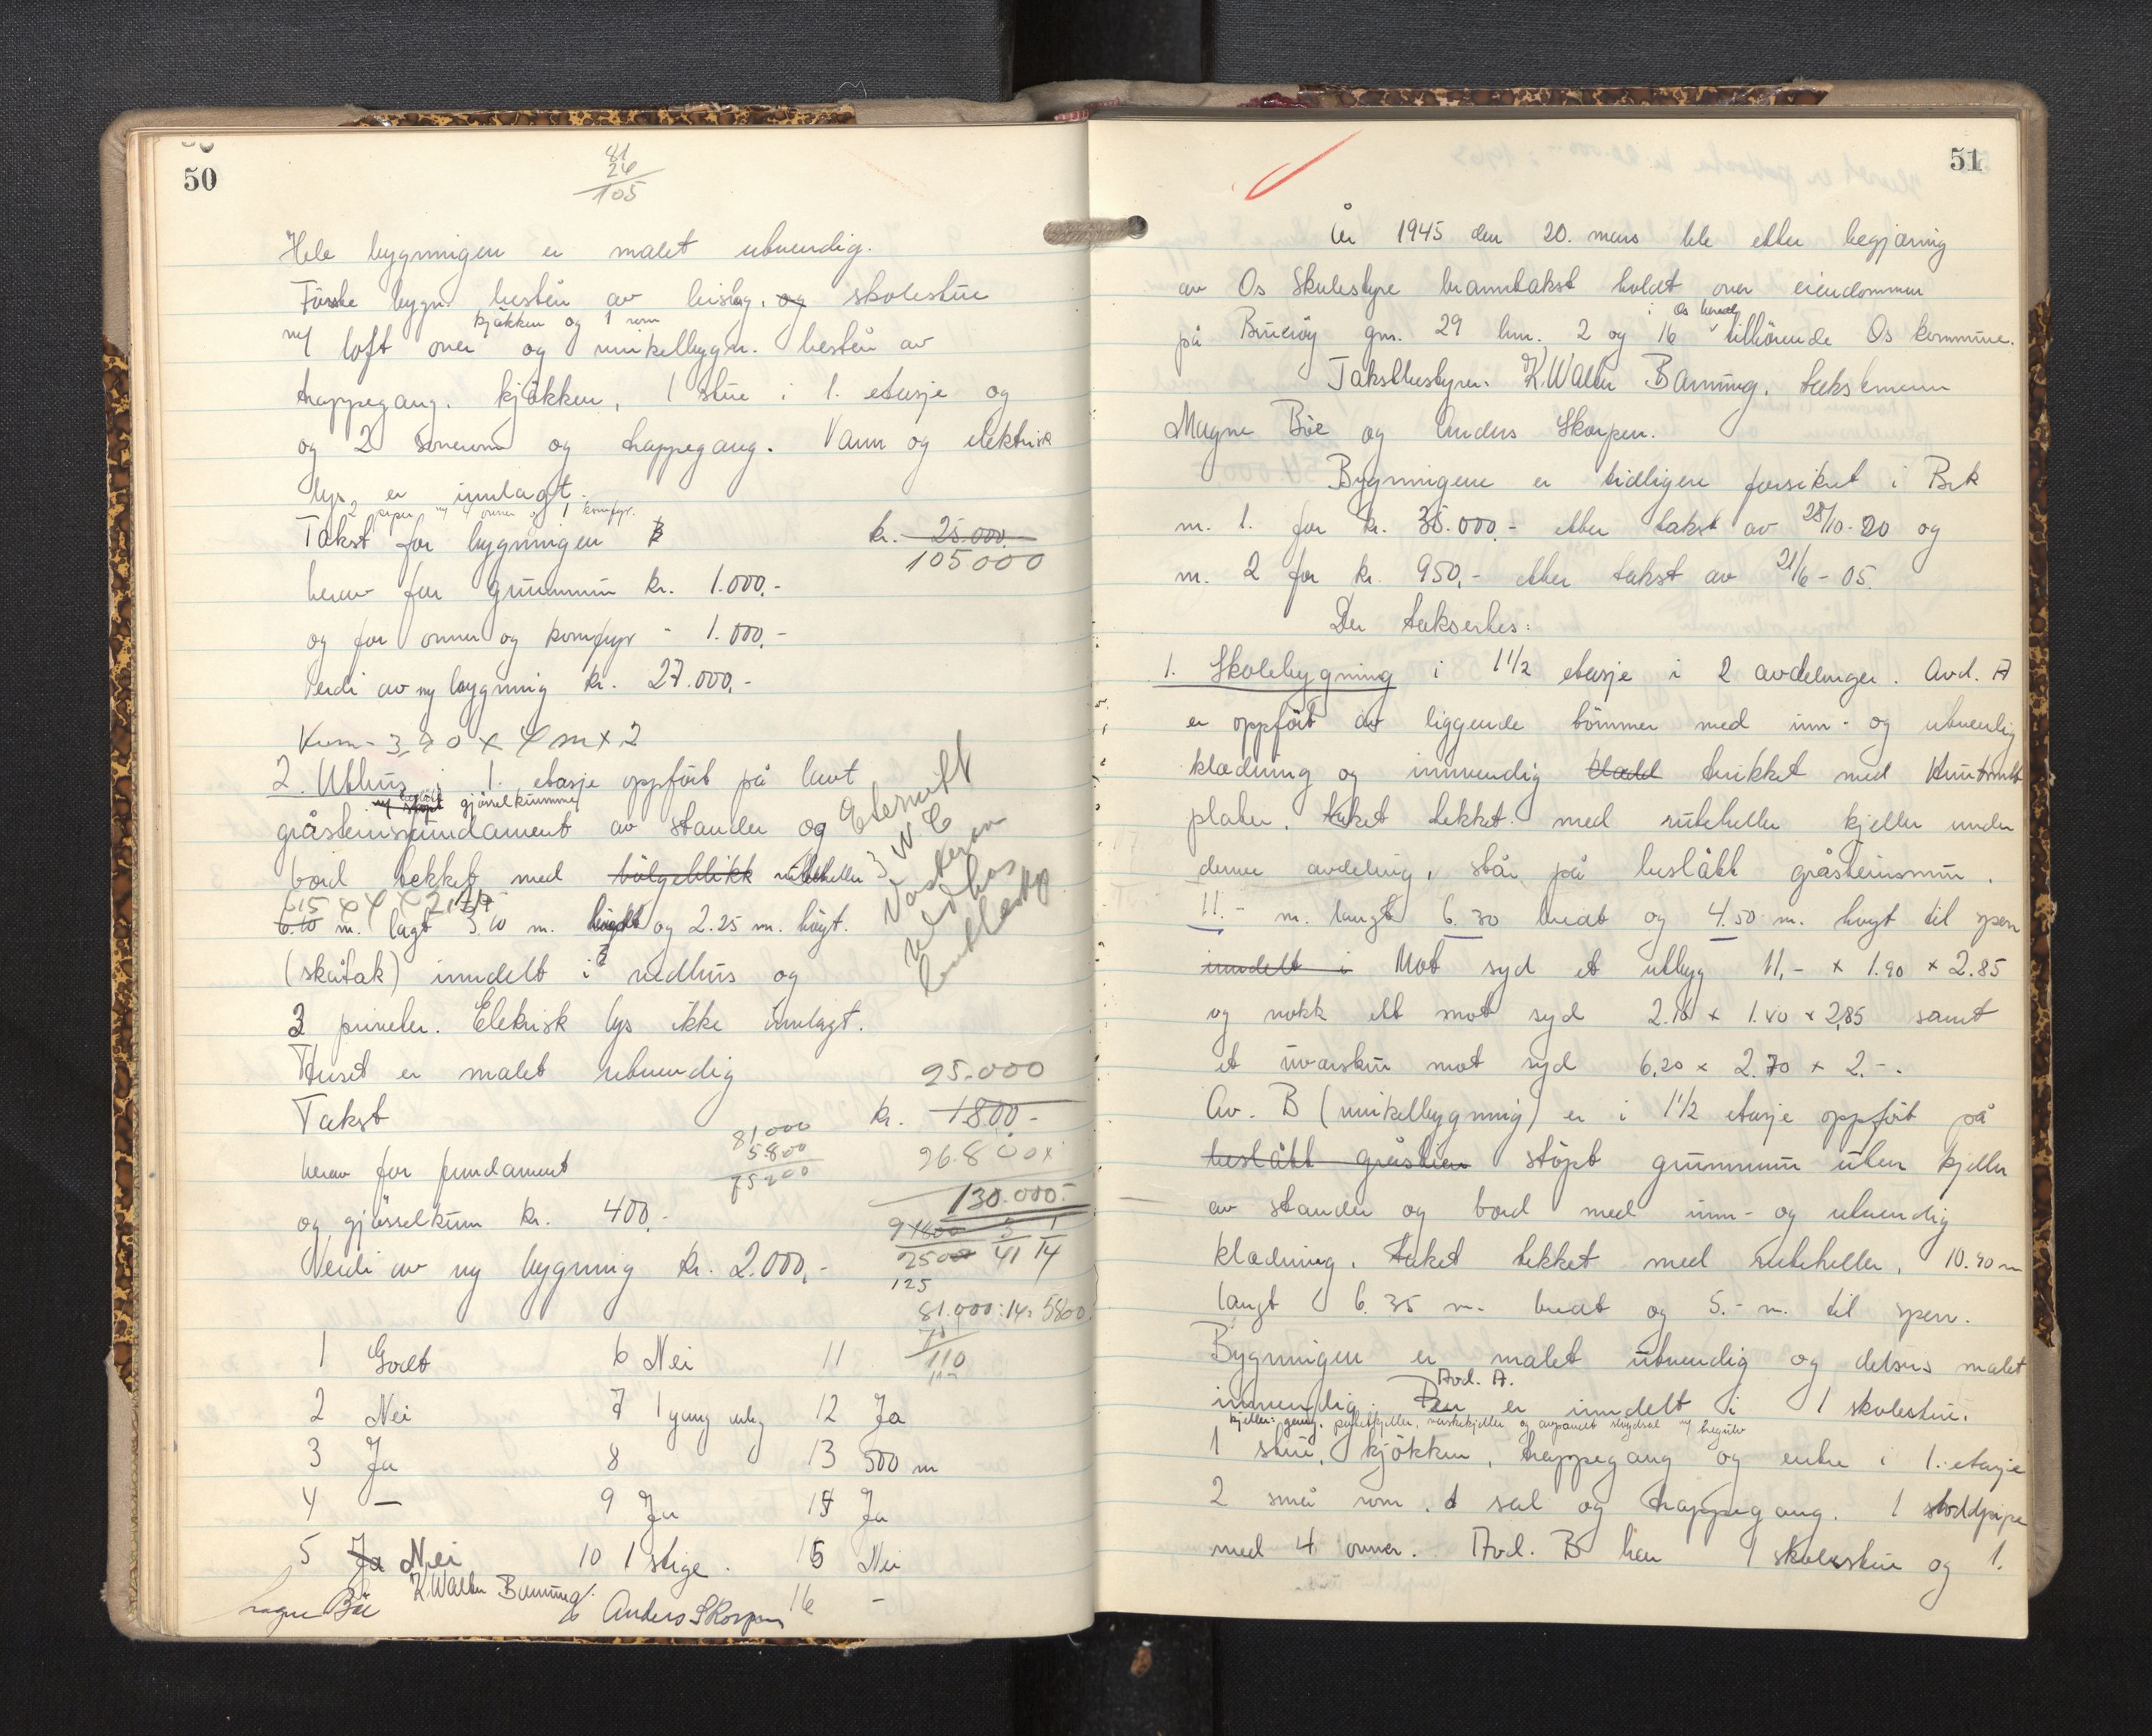 50
81
24
105
Hele bygningen er malet utvendig.
Første bygn. består av bislag, og skolestue
m/ loft over kjøkken og 1 rom og vinkelbygn. består av
trappegang, kjøkken, 1 stue i 1. etasje og
og 2 soverom og trappegang. Vann og elektrisk
lys er innlagt.
2 piper m/ 4 ovner og 1 komfyr.
Takst for bygningen kr. 25.000.
105000
herav for grunnmur kr. 1.000.-
og for ovner og komfyr " 1.000.-
Verdi av ny bygning kr. 27.000.-
Kum - 3,70 x 4 m x 2
2. Uthus i 1. etasje oppført på lavt
m/ støpt gjødselkumme
gråsteinsfundament av stander og
bord tekket med bølgeblikk rutheller
6.10 m. lagt 3.10 m. bredt og 2.25 m. høgt.
(skåtak) inndelt i vedhus og
3 priveter. Elektrisk lys ikke innlagt.
Eternitt
3 WC
Vaskerom
Vedhus
Huset er malet utvendig
25.000
Takst kr. 1800.-
81000
5800
75200
26.800 x
herav for fundament
130.000.-
og gjødselkum kr. 400.-
2500 41 14
Verdi av ny bygning kr. 2.000,-
125
81.000:14= 5800
70
110
1 Godt 6 Nei 11
2 Nei 7 1 gang årlig 12 Ja
3 Ja 8 13 500 m
4 — 9 Ja 14 Ja
5 Ja Nei 10 1 stige. 15 Nei
16 -
Magne Bøe K. Walter Banning. Anders Skorpen
51
År 1945 den 20. mars ble etter begjæring
av Os Skulestyre branntakst holdt over eiendommen
på Bruerøy gnr. 29 bnr. 2 og 16 i Os herred tilhørende Os kommune.
Takstbestyrer. K. Walter Banning, takstmenn
Magne Bøe og Anders Skorpen.
Bygningene er tidligere forsikret i Brk
nr. 1. for kr. 35.000.- etter takst av 28/10-20 og
nr. 2 for kr. 950,- etter takst av 21/6-05.
Der takseres:
1. Skolebygning i 1 1/2 etasje i 2 avdelinger. Avd. A
er oppført av liggende tømmer med inn- og utvendig
klædning og innvendig kledd trukket med
plater. taket tekket med rutheller kjeller under
denne avdeling, står på beslått gråsteinsmur.
11.- m. langt 6.30 bredt og 4.50 m. høgt til sperr
inndelt i Mot syd et utbygg 11,- x 1.90 x 2.85
og nokk ett mot syd 2.10 x 1.40 x 2,85 samt
et svalskur mot syd 6,20 x 2.70 x 2.-.
Av. B (vinkelbygning) er i 1 1/2 etasje oppført på
beslått gråstien støpt grunnmur uten kjeller
av stander og bord med inn- og utvendig
klædning. taket tekket med rutheller. 10.90 m
langt 6.35 m. bredt og 5.- m. til sperr.
Bygningen er malet utvendig og delsvis malet
innvendig. Den Avd. A. er inndelt i 1 skolestue,
kjeller: gang, potetkjeller, vaskekjeller og
1 stue, kjøkken, trappegang og entre i 1. etasje
2 små rom, 1 sal og trappegang. 1 stoddpipe
med 4 ovner. Avd. B har 1 skolestue og 1.